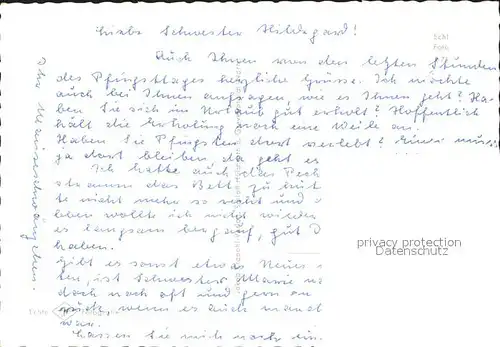 Liebe Schwester Hildegard!
Auch Ihnen von den letzten Stunden
des Pfingsttages herzliche Grüsse. Ich möchte
auch bei Ihnen anfragen wie es Ihnen geht? Ha-
ben Sie sich im Urlaub gut erholt? Hoffentlich
hält die Erholung noch eine Weile an.
Haben Sie Pfingsten dort verlebt?
ja dort bleiben, da geht es
Ich hatte auch das Pech
das Bett zu
te nicht mehr so recht und
aben wollte ich nicht wieder
es langsam bergauf, gut
haben.
Gibt es sonst etwas Neues
ten, ist Schwester Marie
doch noch oft und gern
rück, wenn es auch manch
war.
Lassen Sie mich noch ein
Ihr
Echt
Foto
privacy protection
Datenschutz